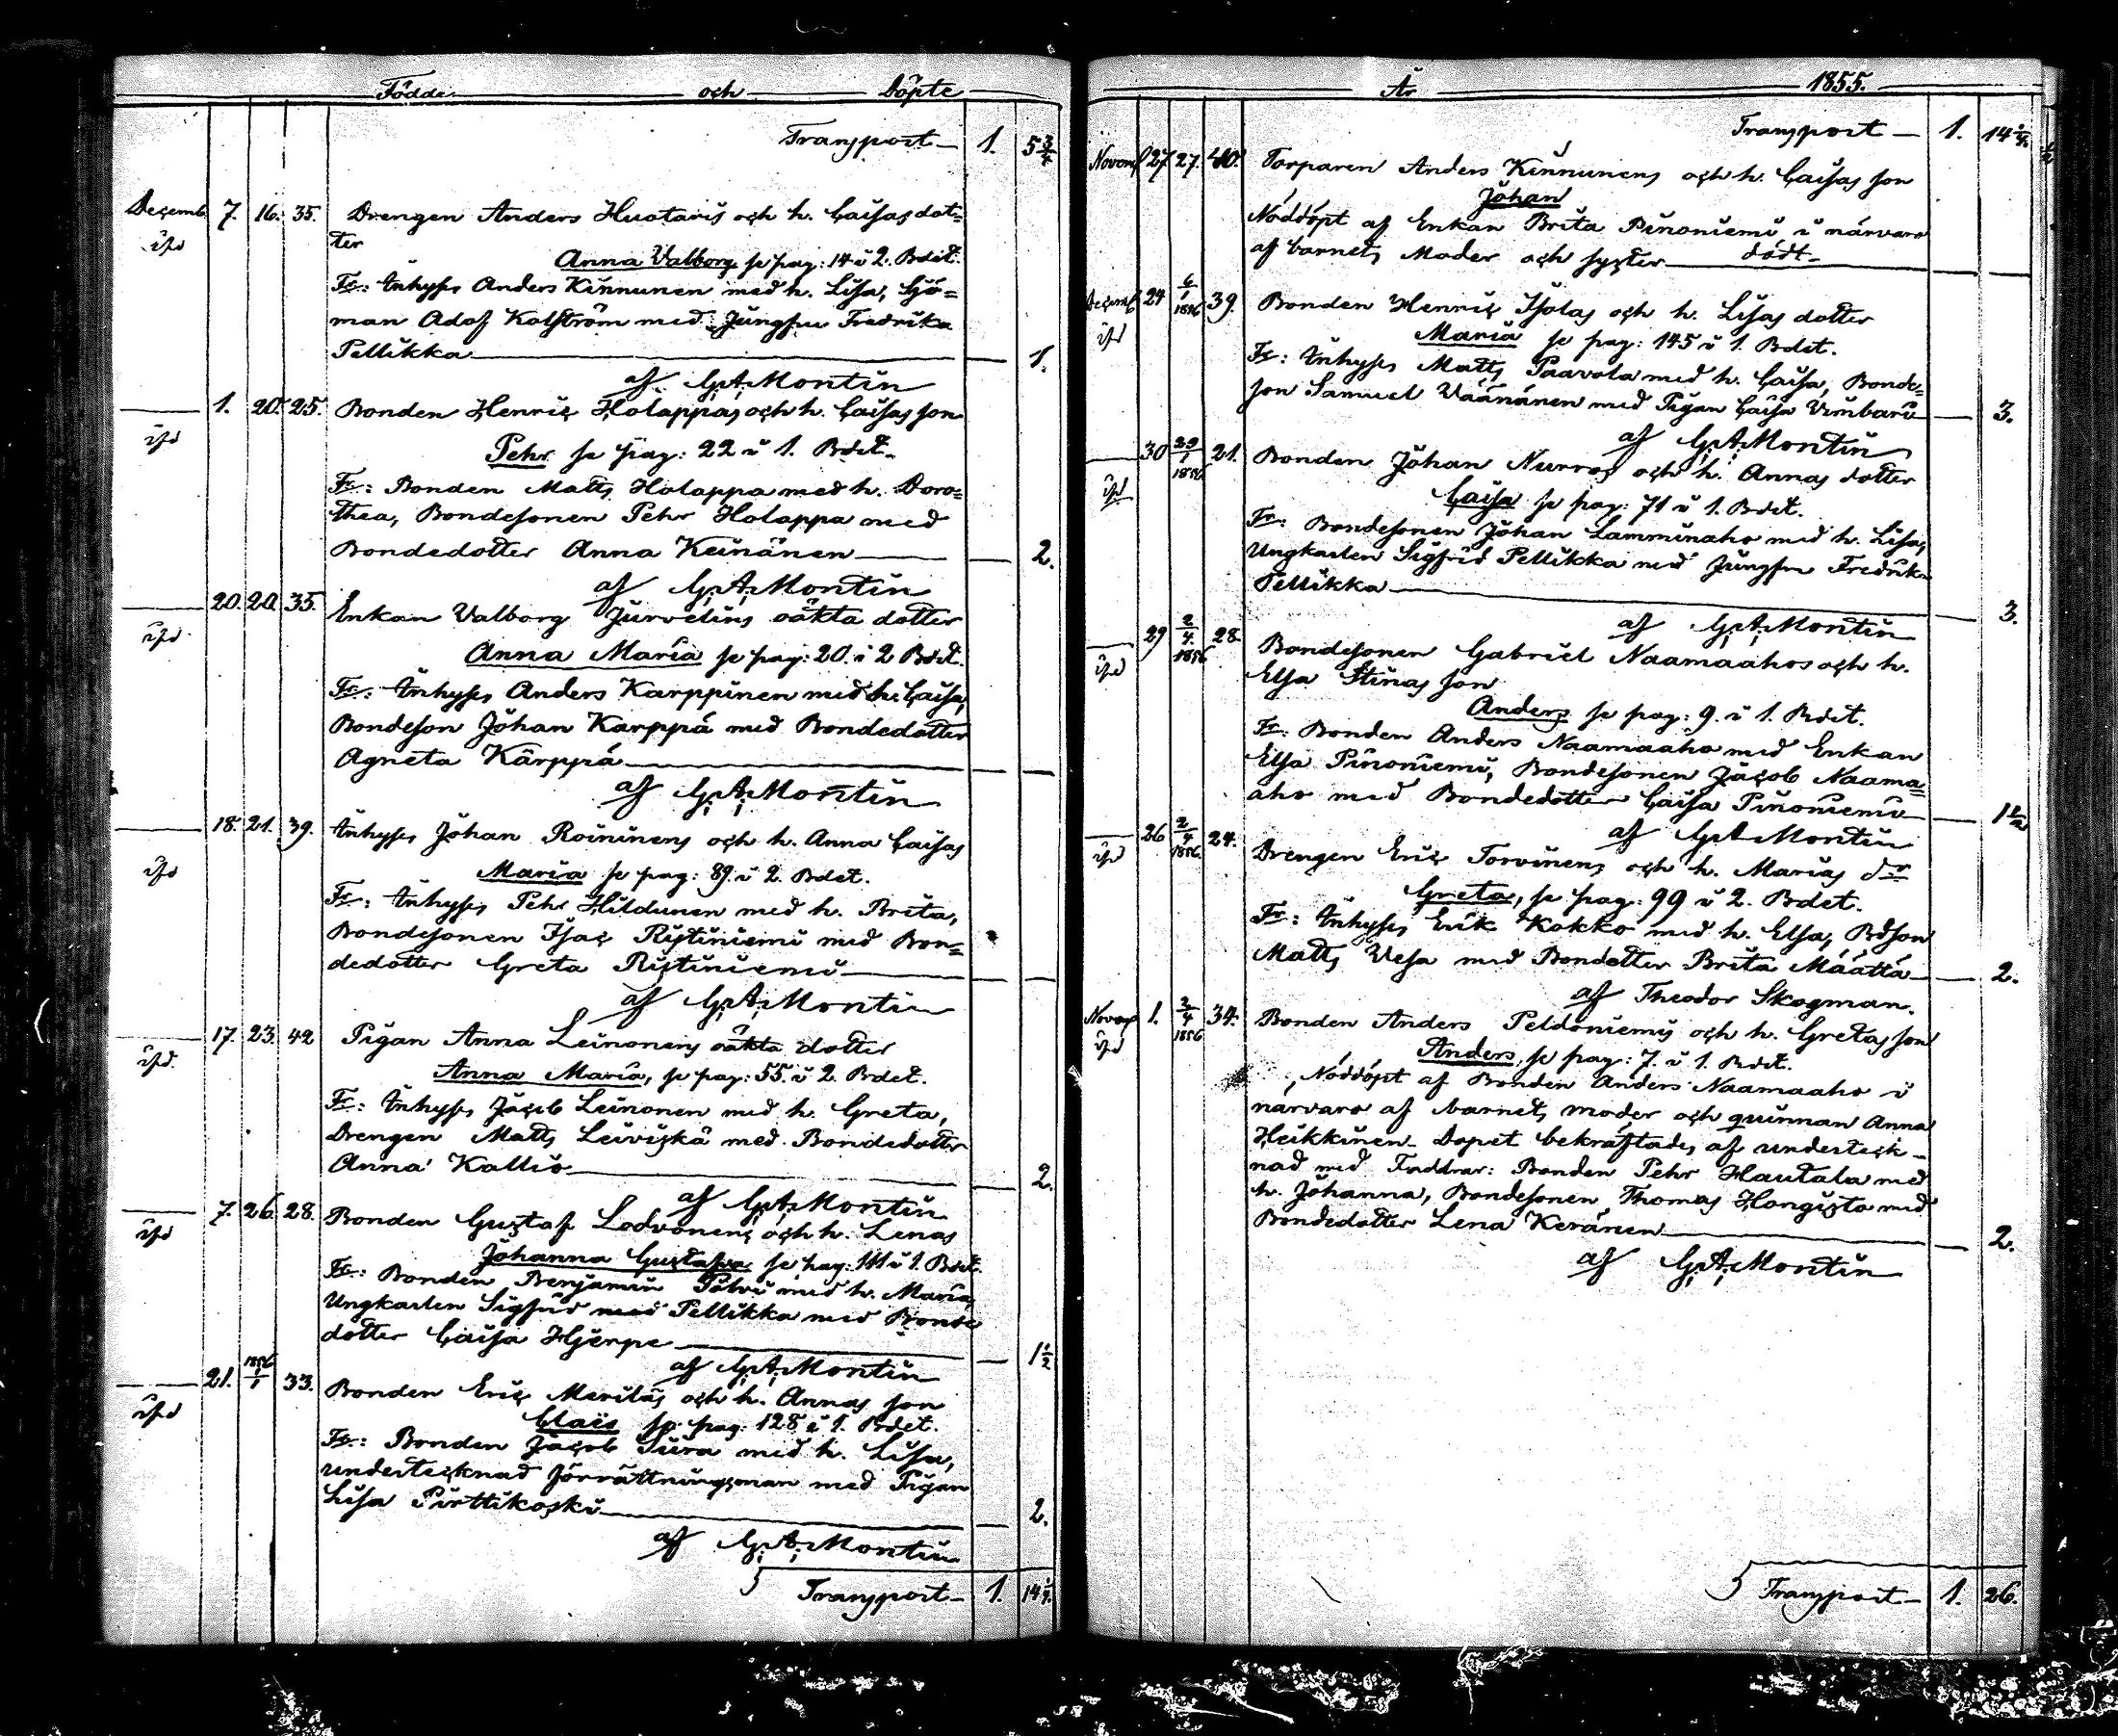 Födde och Döpte
Transport — 1. 5 3/4
Decemb. 7. 16. 35. Drengen Anders Huotaris och h. Caisas dot=
ter
Anna Valborg se pag: 14 i 2. Bdet.
Fr: Inhyses Anders Kinnunen med h. Lisa, Sjö=
man Adof Kolström med Jungfru Fredrika
Pellikka — 1.
af G. A. Montin
1. 20. 25. Bonden Henric Holappas och h. Caisas son
Pehr se pag: 22 i 1. Bdet.
Fr: Bonden Matts Holappa med h. Doro=
thea, Bondesonen Pehr Holappa med
Bondedotter Anna Keinänen — 2.
af G. A. Montin
20. 20. 35. Enkan Valborg Jurvelins oäkta dotter
Anna Maria se pag: 20. i 2 Bdet.
Fr: Inhyses Anders Karppinen med h. Caisa,
Bondeson Johan Karppä med Bondedotter
Agneta Kärppä —
af G. A. Montin
18. 21. 39. Inhyses Johan Roininens och h. Anna Caisas
Maria se pag: 89. i 2. Bdet.
Fr: Inhyses Pehr Hildunen med h. Brita,
Bondesonen Isac Ristiniemi med Bon=
dedotter Greta Ristiniemi —
af G. A. Montin
17. 23. 42 Pigan Anna Leinonens oäkta dotter
Anna Maria, se pag: 55. i 2. Bdet.
Fr: Inhyses Jacob Leinonen med h. Greta,
Drengen Matts Leiviskä med Bondedotter
Anna Kallio — 2.
af G. A. Montin
7. 26. 28. Bonden Gustaf Lodvonens och h. Lenas
Johanna Gustafva se pag: 111 i 1. Bdet.
Fr: Bonden Benjamin Polvi med h. Maria,
Ungkarlen Sigfrid med Pellikka med Bonde
dotter Caisa Hjerpe — 1 1/2
af G. A. Montin
21. 1856 1/1 33. Bonden Eric Meriläs och h. Annas son
Clais se pag: 128 i 1. Bdet.
Fr: Bonden Jacob Sura med h. Lisa,
undertecknad förrättningsman med Pigan
Lisa Pirttikoski — 2.
af G. A. Montin
Transport — 1. 14 1/4.
År 1855.
Transport — 1. 14 1/4.
Novemb 27. 27. 40. Torparen Anders Kinnunens och h. Caisas son
Johan
Nöddöpt af Enkan Brita Pinoniemi i närvaro
af barnets Moder och syster — dödt —
Decemb 24 6/1 1856 39. Bonden Henric Isolas och h. Lisas dotter
Maria se pag: 145 i 1. Bdet.
Fr: Inhyses Matts Paavola med h. Caisa, Bonde=
son Samuel Väänänen med Pigan Caisa Vimbari — 3.
af G. A. Montin
30 29/1 1856 21. Bonden Johan Nurros och h. Annas dotter
Caisa se pag: 71 i 1. Bdet.
Fr: Bondesonen Johan Lamminaho med h. Lisa,
Ungkarlen Sigfrid Pellikka med Jungfru Fredrika
Pellikka — 3.
af G. A. Montin
29 2/4 1856 28. Bondesonen Gabriel Naamaahos och h.
Elsa Stinas son
Anders se pag: 9. i 1. Bdet.
Fr: Bonden Anders Naamaaho med Enkan
Elsa Pinoniemi, Bondesonen Jacob Naama=
aho med Bondedotter Caisa Pinoniemi — 1 1/2
af G. A. Montin
26 2/4 1856. 24. Drengen Eric Torvinens och h. Marias dr
Greta, se pag: 99 i 2. Bdet.
Fr: Inhyses Erik Kokko med h. Elsa, Bdson
Matts Vesa med Bondotter Brita Määttä — 2.
af Theodor Skogman.
Novemb 1. 2/4 1856 34. Bonden Anders Peldoniemis och h. Gretas son
Anders, se pag: 7. i 1. Bdet.
Nöddöpt af Bonden Anders Naamaaho i
närvaro af barnets moder och quinnan Anna
Heikkinen. Dopet bekräftades af underteck-
nad med Faddrar: Bonden Pehr Hautala med
h. Johanna, Bondesonen Thomas Hongisto med
Bondedotter Lena Keränen — 2.
af G. A. Montin
Transport — 1. 26.